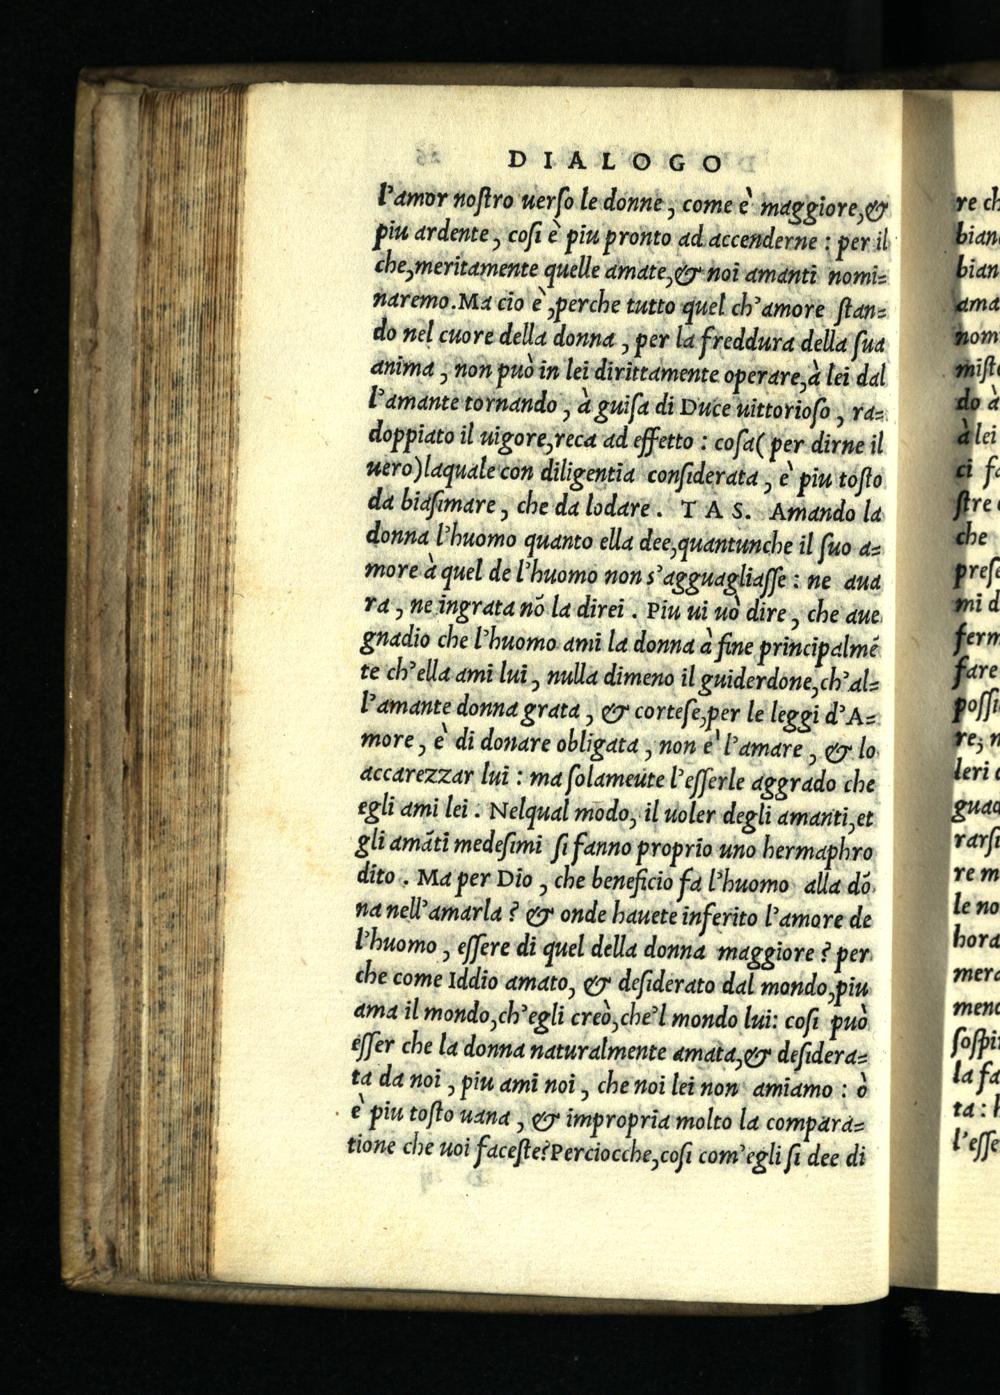 DIALOGO
l'amor noſtro uerſo le donne, come è maggiore,&
piu ardente, coſi è piu pronto ad accenderne : per il
che,meritamente quelle amate,& noi amanti nomi=
naremo.Ma cio è,perche tutto quel ch'amore ſtan=
do nel cuore della donna, per la freddura della ſua
anima, non può in lei dirittamente operare,à lei dal
l'amante tornando, à guiſa di Duce uittorioſo, ra=
doppiato il uigore,reca ad effetto : coſa( per dirne il
uero)laquale con diligentia conſiderata, è piu toſto
da biaſimare, che da lodare. TAS. Amando la
donna l'huomo quanto ella dee,quantunche il ſuo a=
more à quel de l'huomo non s'agguagliaſſe : ne aua
ra, ne ingrata nõ la direi. Piu ui uò dire, che aue
gnadio che l'huomo ami la donna à fine principalmẽ
te ch'ella ami lui, nulla dimeno il guiderdone,ch'al=
l'amante donna grata, & corteſe,per le leggi d'A=
more, è di donare obligata, non è l'amare, & lo
accarezzar lui : ma ſolameute l'eſſerle aggrado che
egli ami lei. Nelqual modo, il uoler degli amanti,et
gli amãti medeſimi ſi fanno proprio uno hermaphro
dito. Ma per Dio, che beneficio fa l'huomo alla dõ
na nell'amarla ? & onde hauete inferito l'amore de
l'huomo, eſſere di quel della donna maggiore ? per
che come Iddio amato, & deſiderato dal mondo,piu
ama il mondo,ch'egli creò,che'l mondo lui: coſi può
eſſer che la donna naturalmente amata,& deſidera=
ta da noi, piu ami noi, che noi lei non amiamo : ò
è piu toſto uana, & impropria molto la compara=
tione che uoi faceſte?Perciocche,coſi com'egli ſi dee di
re ch
bian
bian
ama
nom
miſt
do à
à lei
ci fa
ſtre
che
preſe
mi d
ferm
fare
poſſi
re; n
leri
guad
rarſi
re m
le no
hora
mera
mend
ſoſpi
la fa
ta : h
l'eſſe